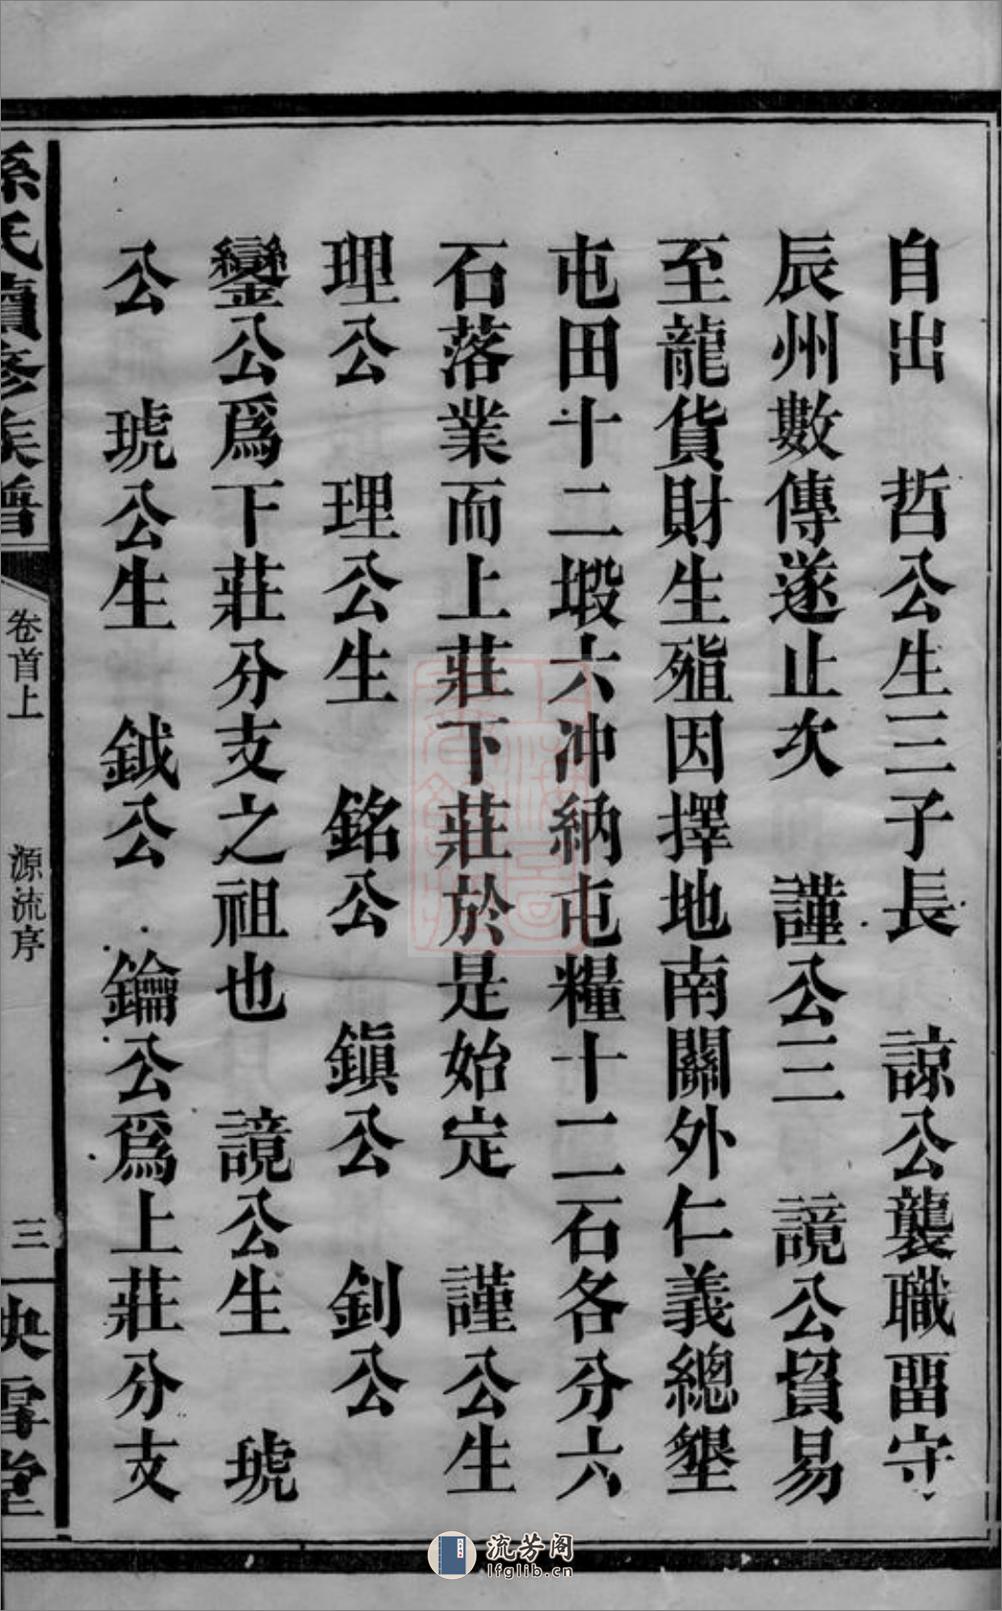 自出　哲公生三子長　諒公襲職畱守
辰州數傳遂止次　謹公三　謏公貿易
至龍貨財生殖因擇地南關外仁義總墾
屯田十二塅六冲納屯糧十二石各分六
石落業而上莊下莊於是始定　謹公生
理公　理公生　銘公　鎭公　釗公
鑾公爲下莊分支之祖也　謏公生　琥
公　琥公生　鉞公　鑰公爲上莊分支
孫氏續修族譜
卷首上
源流序
三
映雪堂
流芳阁
lfglib.cn